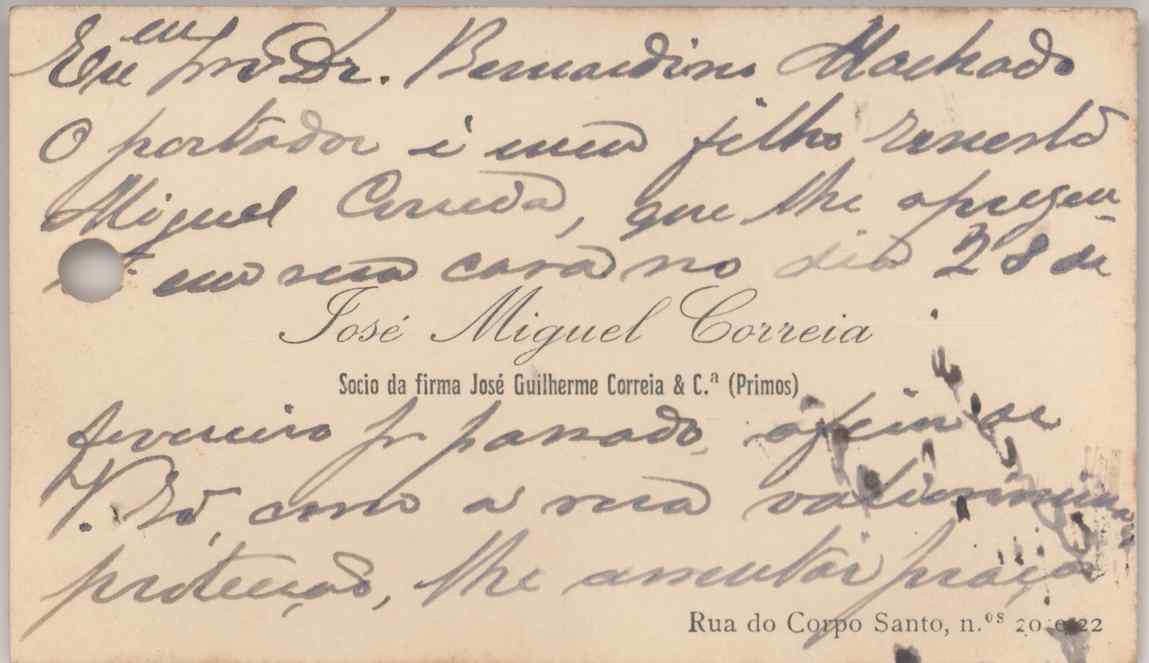 Exᵐᵒ Snr Dr. Bernardino Machado
O portador é meu filho Ernesto
Miguel Correia, que lhe apresen-
tei em sua casa no dia 28 de
José Miguel Correia
Socio da firma José Guilherme Correia & C.ª (Primos)
fevereiro p. passado, afim de
V. Exª, com a sua valiosissima
protecção, lhe assentar praça
Rua do Corpo Santo, n.ᵒˢ 20 e 22